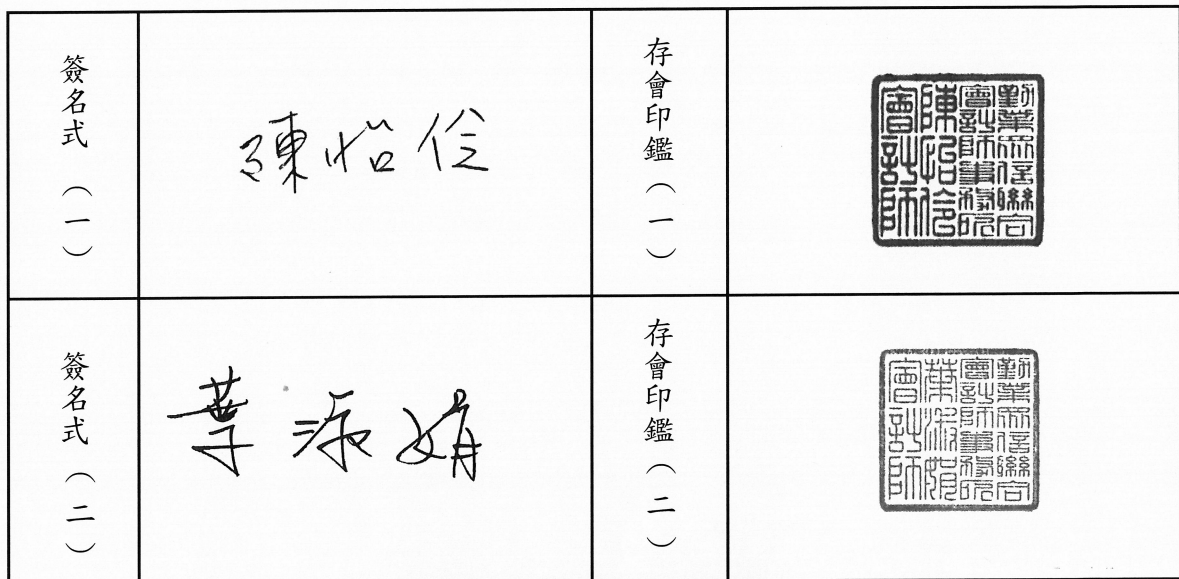 簽名式（一）
陳怡伶
存會印鑑（一）
勤業眾信聯合
會計師事務所
陳怡伶
會計師
簽名式（二）
葉淑娟
存會印鑑（二）
勤業眾信聯合
會計師事務所
葉淑娟
會計師